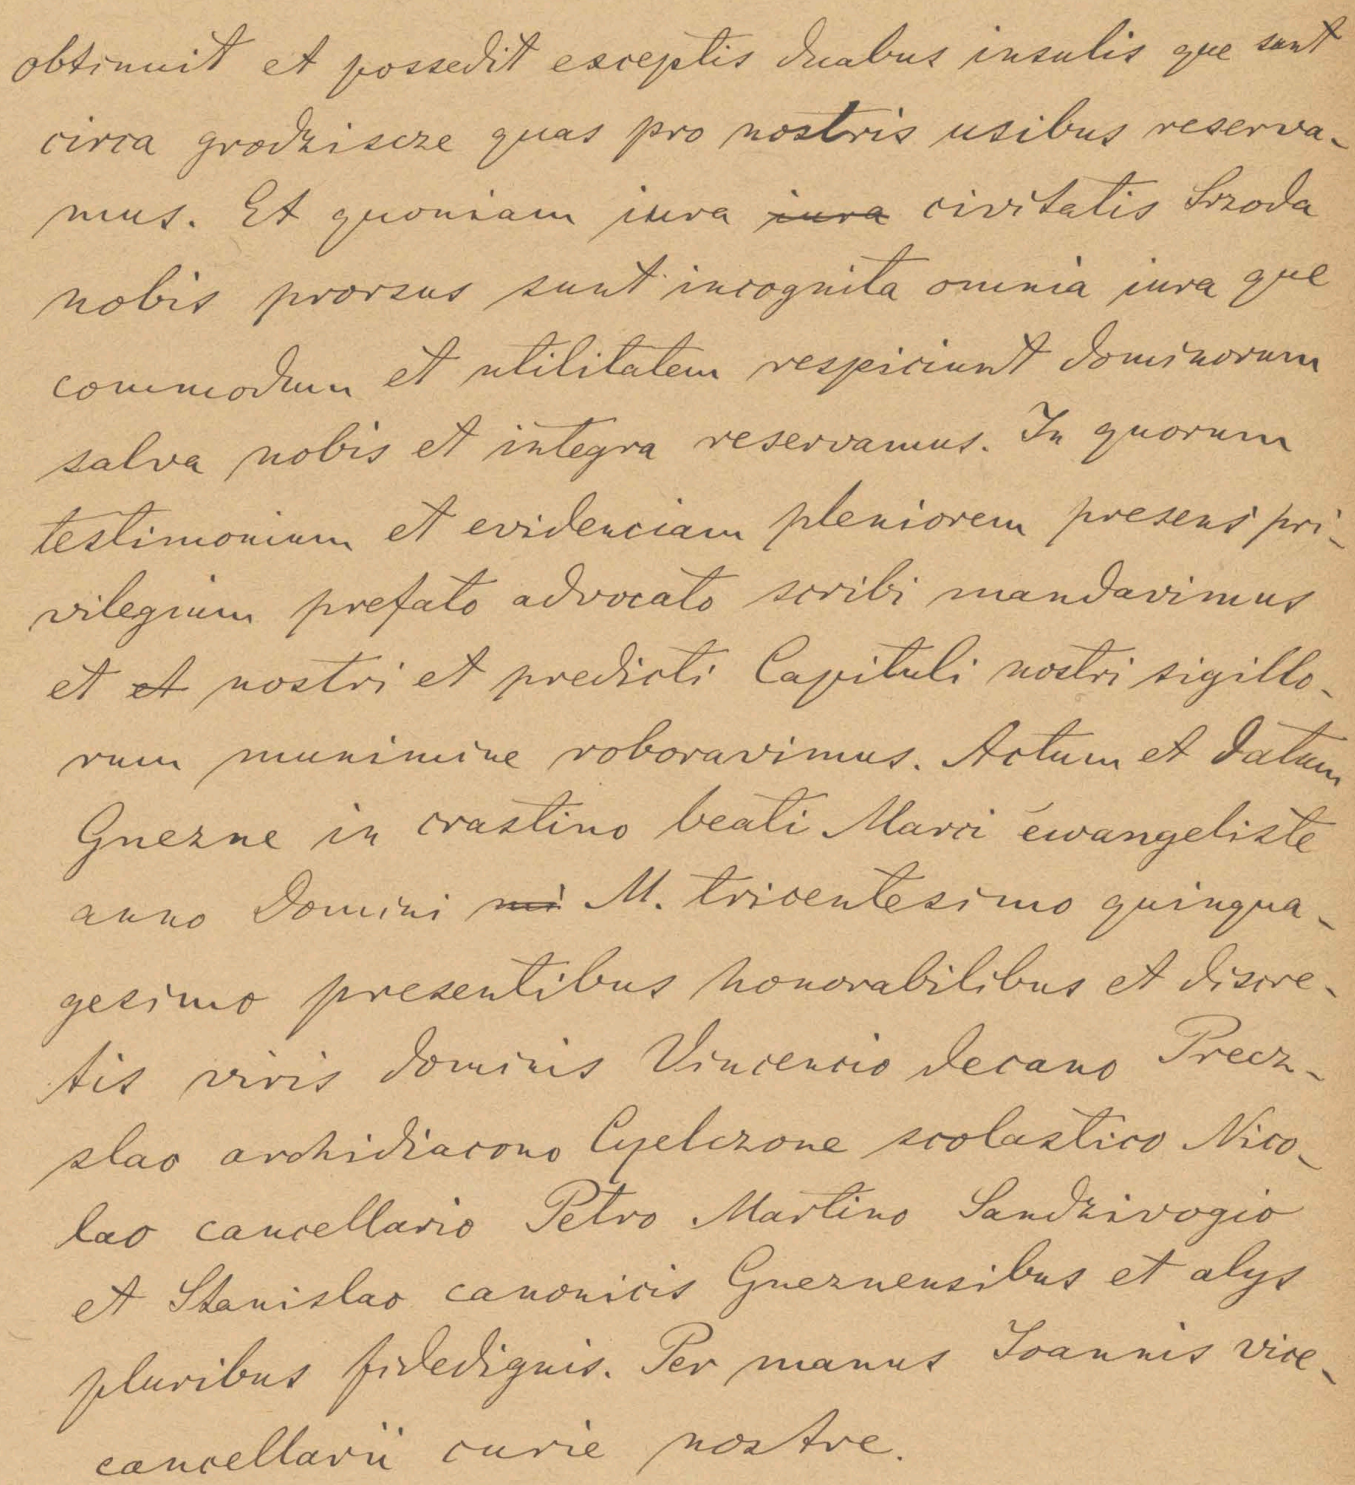 obtinuit et possedit exceptis duabus insulis que sunt
circa grodziscze quas pro nostris usibus reserva-
mus. Et quoniam iura iura civitatis Srzoda
nobis prorsus sunt incognita omnia iura que
commodum et utilitatem respiciunt dominorum
salva nobis et integra reservamus. In quorum
testimonium et evidenciam pleniorem presens pri-
vilegium prefato advocato scribi mandavimus
et et nostri et predicti Capituli nostri sigillo-
rum munimine roboravimus. Actum et datum
Gnezne in crastino beati Marci ewangeliste
anno Domini mi M. tricentesimo quinqua-
gesimo presentibus honorabilibus et discre-
tis viris dominis Vincencio decano Precz-
slao archidiacono Cyelczone scolastico Nico-
lao cancellario Petro Martino Sandzivogio
et Stanislao canonicis Gneznensibus et alys
pluribus fidedignis. Per manus Joannis vice-
cancellarii curie nostre.